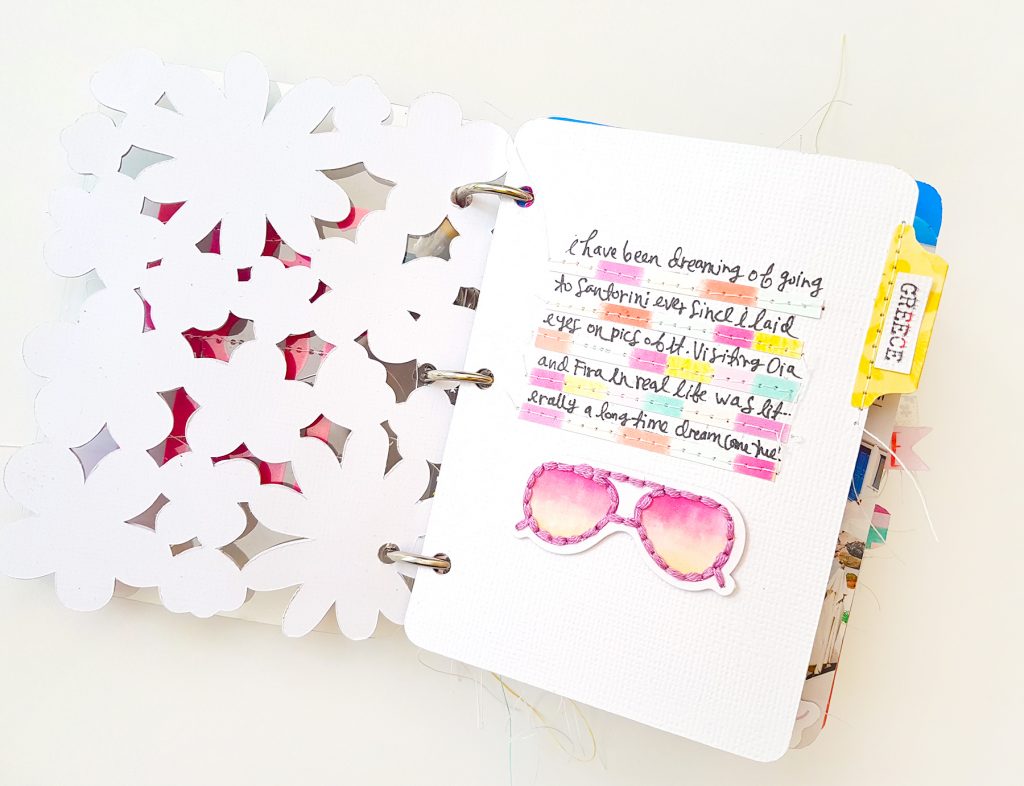 i have been dreaming of going
to Santorini ever since I laid
eyes on pics of it. Visiting Oia
and Fira in real life was lit-
erally a long-time dream come true!
GREECE